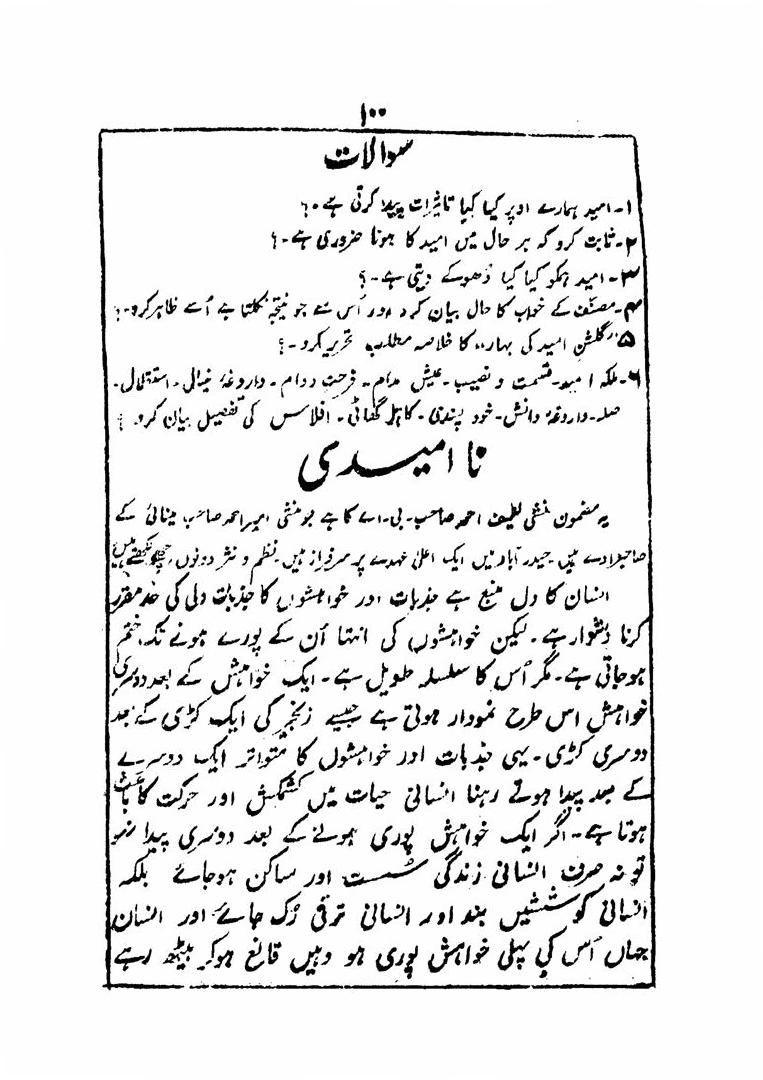 ۱۰۰
سوالات
۱۔ امید ہمارے اوپر کیا کیا تاثیرات پیدا کرتی ہے۔؟
۲۔ ثابت کرو کہ ہر حال میں امید کا ہونا ضروری ہے۔؟
۳۔ امید ہمکو کیا کیا دھوکے دیتی ہے۔؟
۴۔ مصنّف کے خواب کا حال بیان کرو اور اُس سے جو نتیجہ نکلتا ہے اُسے ظاہر کرو۔؟
۵۔ گلشنِ امید کی بہار،، کا خلاصہ مطلب تحریر کرو۔؟
۶۔ ملکہ امید۔ قسمت و نصیب۔ عیش مدام۔ فرحت دوام۔ داروغۂ خیالی۔ استقلال۔
صلہ۔ داروغۂ دانش۔ خود پسندی۔ کاہل گھاٹی۔ افلاس کی تفصیل بیان کرو۔؟
نا امیدی
یہ مضمون منشی لطیف احمد صاحب۔ بی۔ اے کا ہے جو منشی امیر احمد صاحب مینائی کے
صاحبزادے ہیں۔ حیدرآباد میں ایک اعلیٰ عہدے پر سرفراز ہیں۔ نظم و نثر دونوں اچھی لکھتے ہیں
انسان کا دل منبع ہے جذبات اور خواہشوں کا جذبات دلی کی حد مقرر
کرنا دشوار ہے۔ لیکن خواہشوں کی انتہا اُن کے پورے ہونے تک ختم
ہو جاتی ہے۔ مگر اُس کا سلسلہ طویل ہے۔ ایک خواہش کے بعد دوسری
خواہش اس طرح نمودار ہوتی ہے جیسے زنجیر کی ایک کڑی کے بعد
دوسری کڑی۔ یہی جذبات اور خواہشوں کا متواتر ایک دوسرے
کے بعد پیدا ہوتے رہنا انسانی حیات میں کشمکش اور حرکت کا باعث
ہوتا ہے۔ اگر ایک خواہش پوری ہونے کے بعد دوسری پیدا نہ ہو
تو نہ صرف انسانی زندگی سُست اور ساکن ہو جائے بلکہ
انسانی کوششیں بند اور انسانی ترقی رُک جائے اور انسان
جہاں اُس کی پہلی خواہش پوری ہو وہیں قانع ہو کر بیٹھ رہے